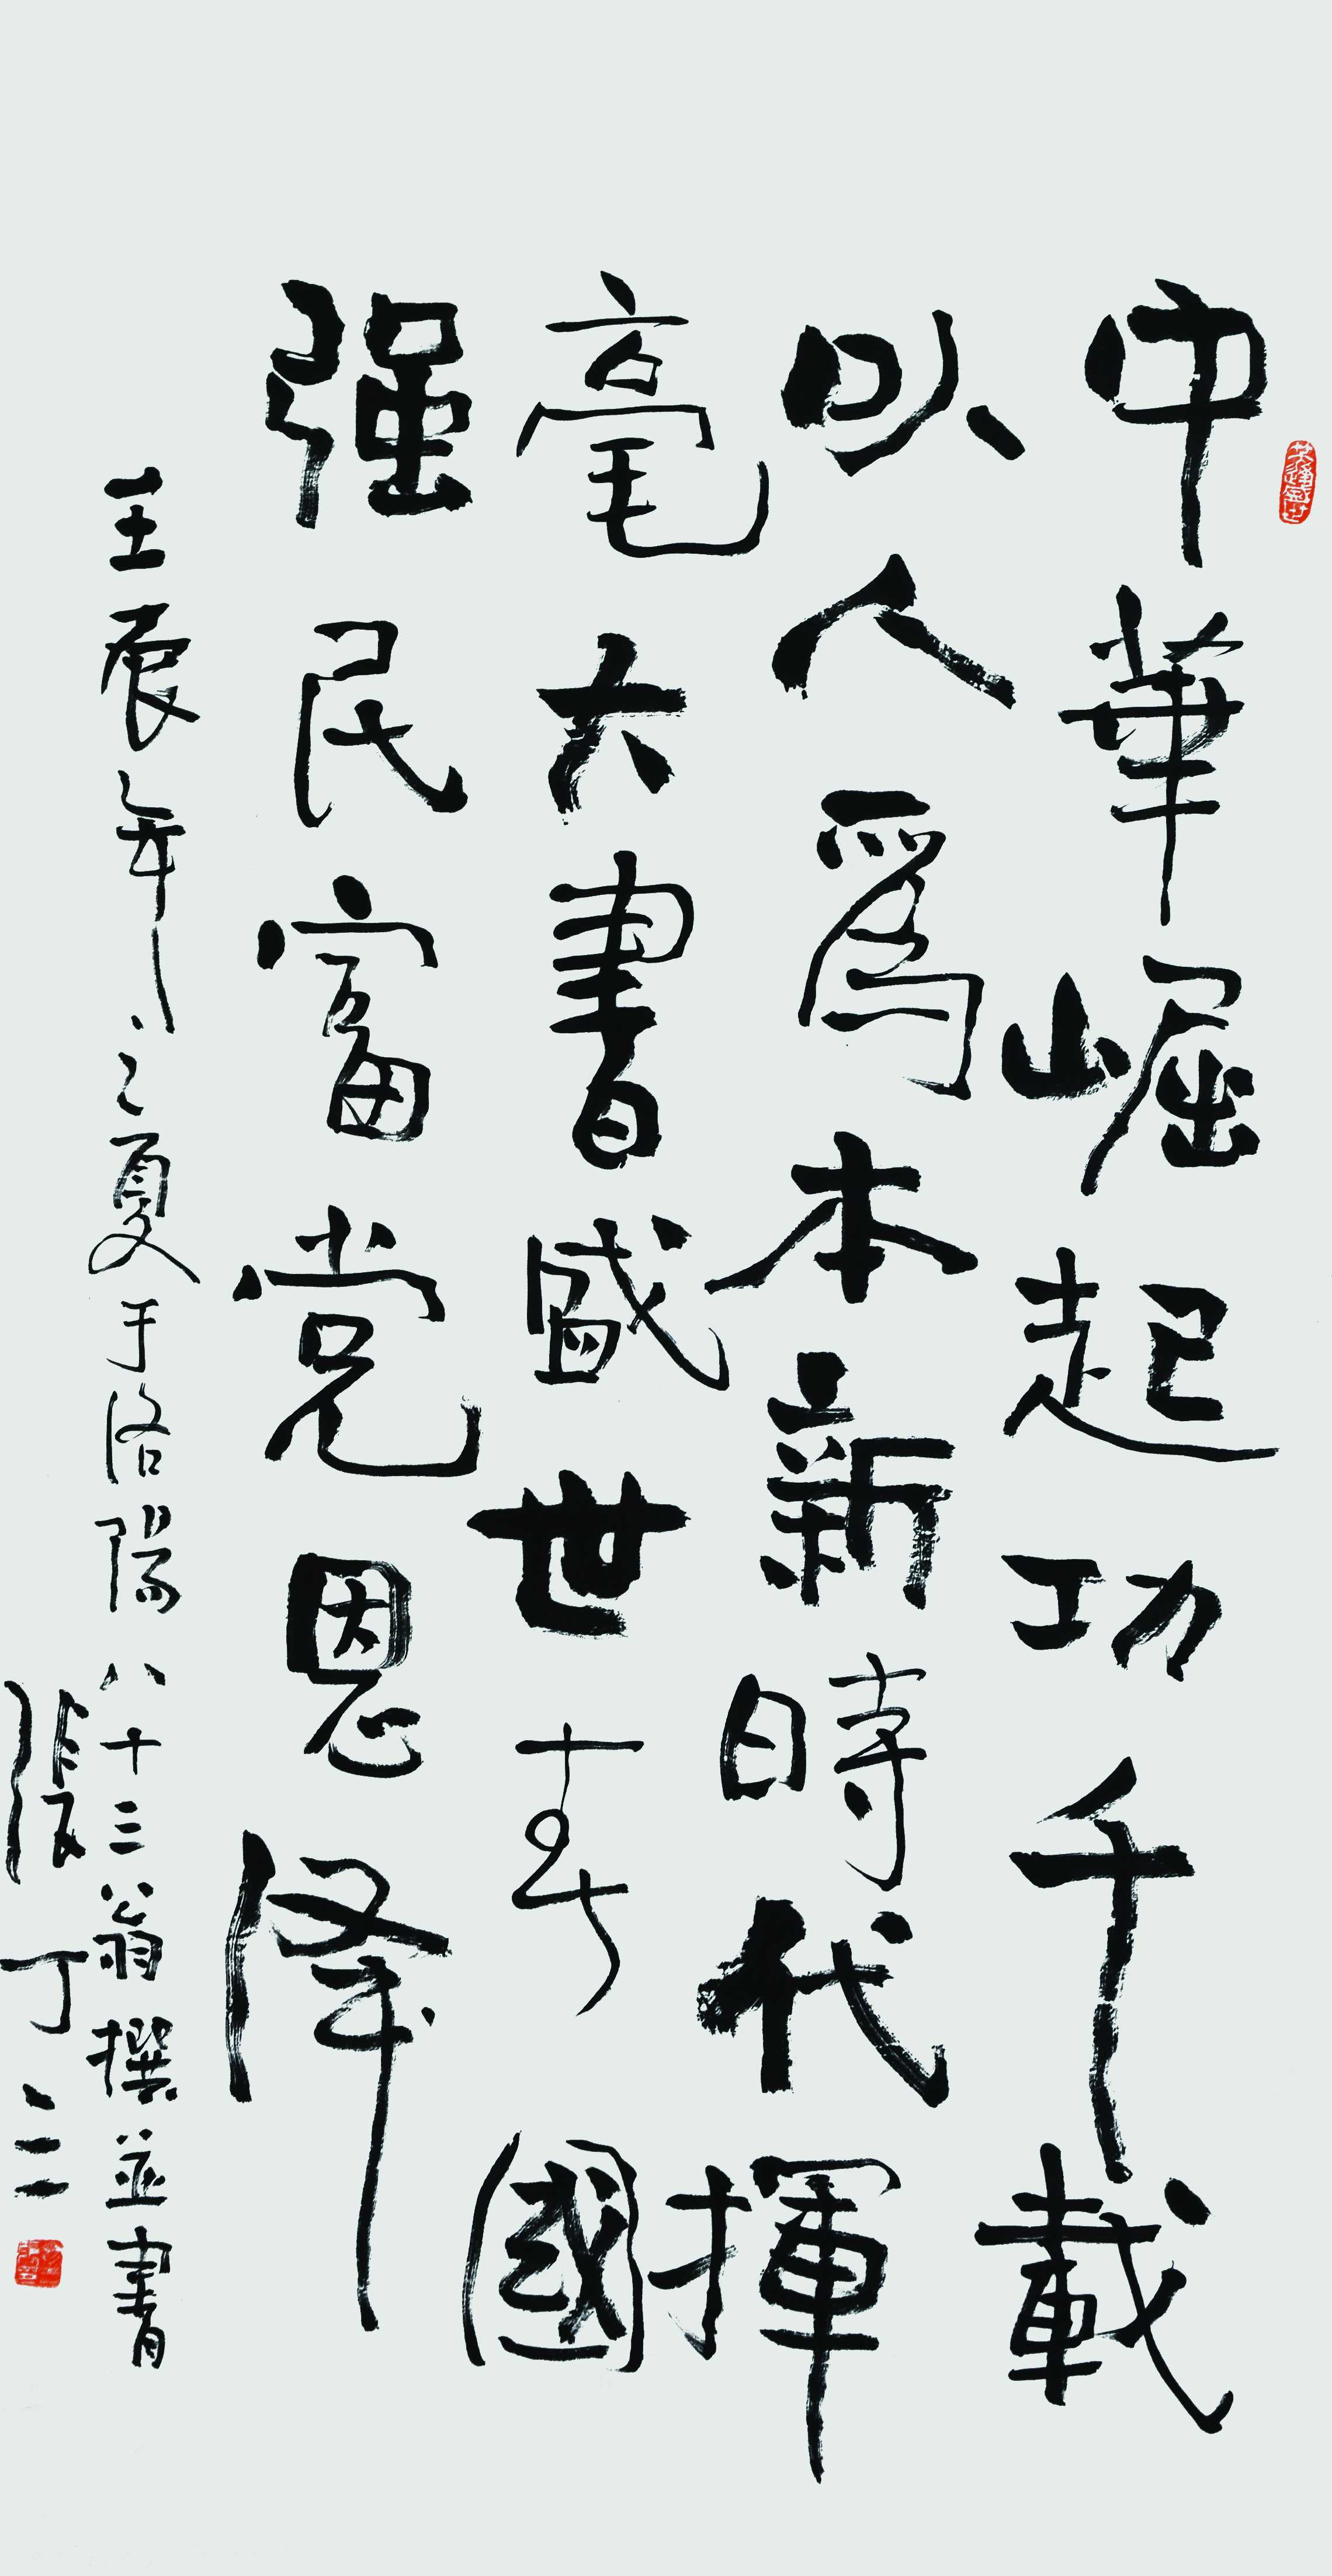 中華崛起功千載
以人爲本新時代揮
毫大書盛世春國
强民富党恩泽
壬辰年之夏于洛陽八十三翁撰並書
張丁三